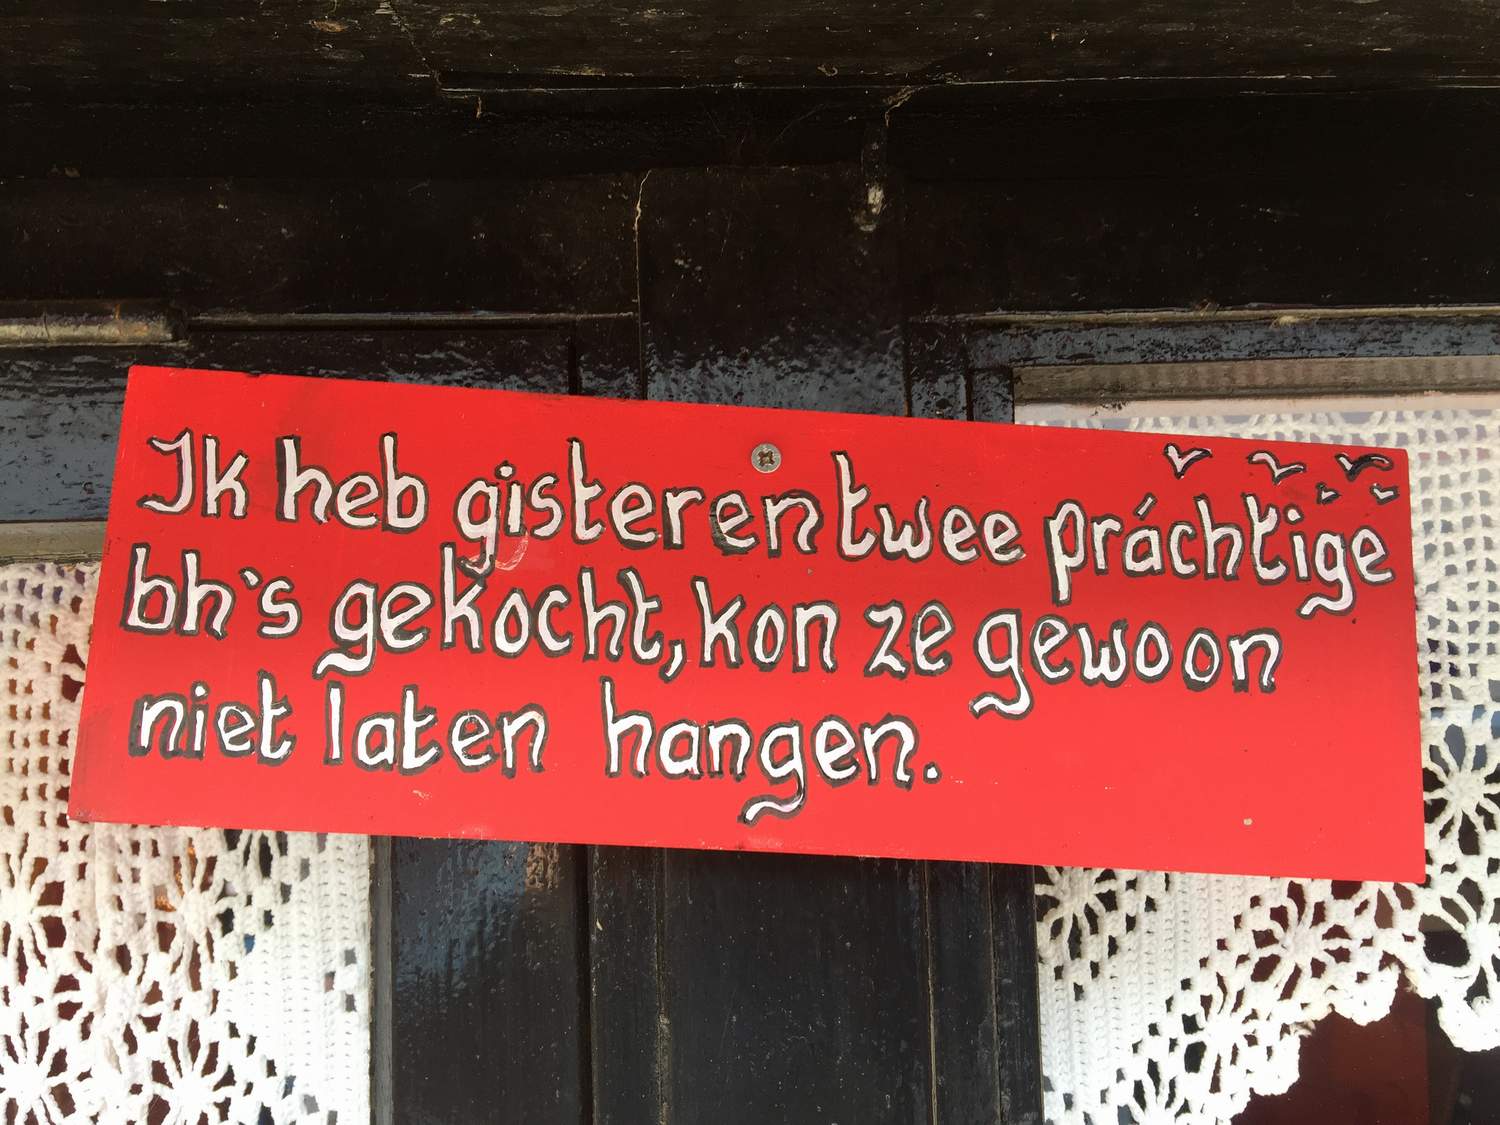 Ik heb gisteren twee práchtige
bh's gekocht, kon ze gewoon
niet laten hangen.